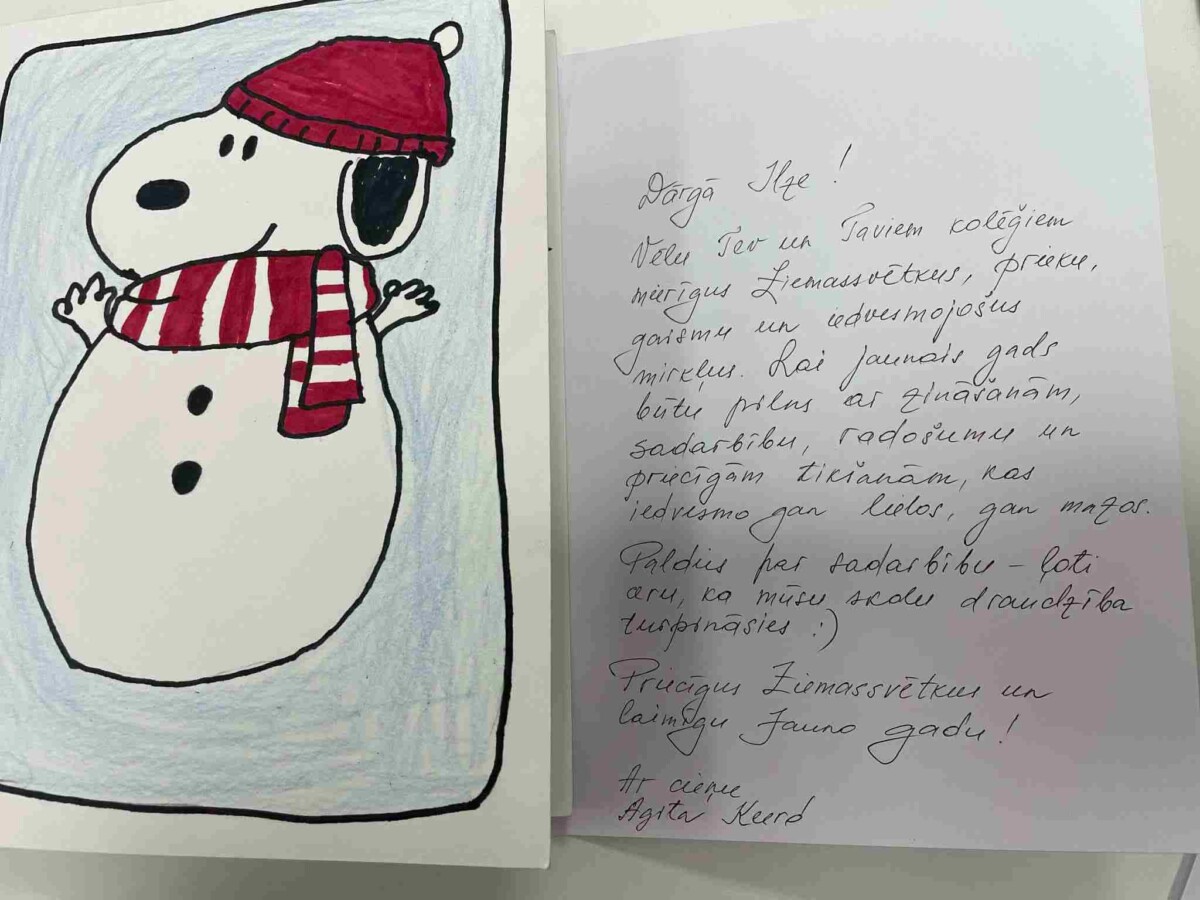 Dārgā Ilze!
Vēlu Tev un Taviem kolēģiem
mierīgus Ziemassvētkus, prieku,
gaismu un iedvesmojošus
mirkļus. Lai jaunais gads
būtu pilns ar zināšanām,
sadarbību, radošumu un
priecīgām tikšanām, kas
iedvesmo gan lielos, gan mazos.
Paldies par sadarbību – ļoti
ceru, ka mūsu skolu draudzība
turpināsies :)
Priecīgus Ziemassvētkus un
laimīgu Jauno gadu!
Ar cieņu
Agita